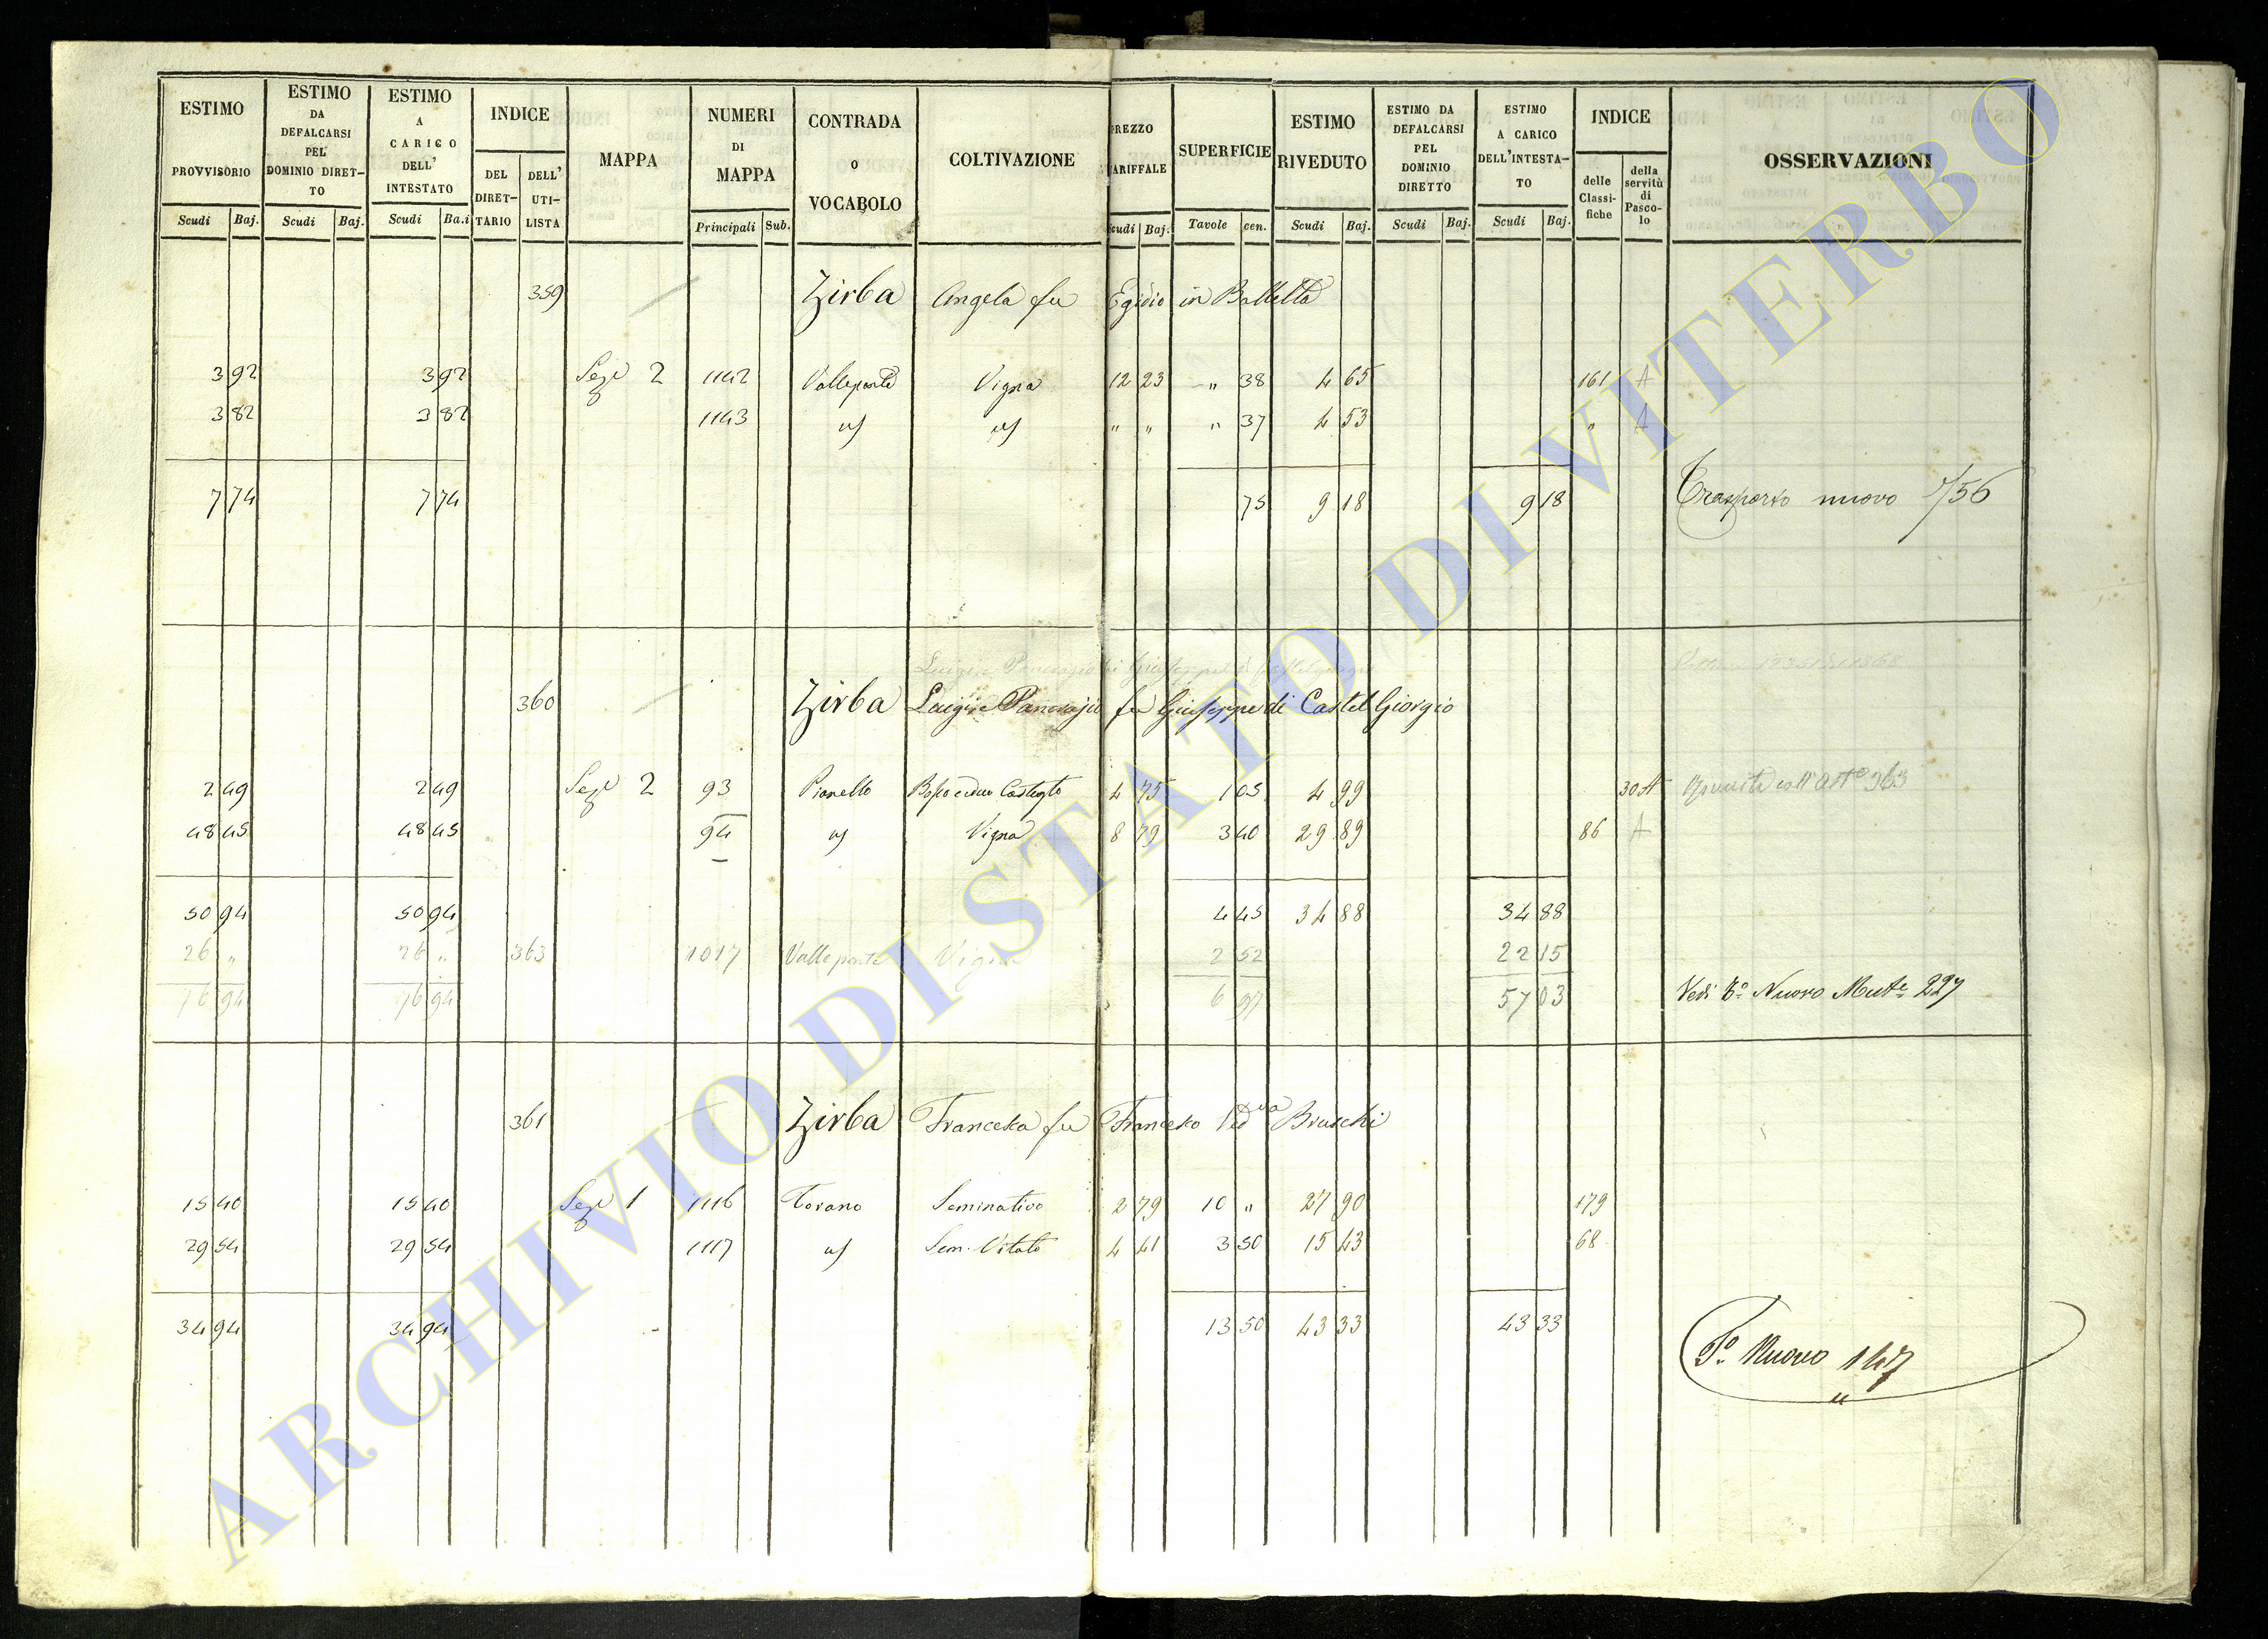 ESTIMO PROVVISORIO Scudi Baj.
ESTIMO DA DEFALCARSI PEL DOMINIO DIRET-TO Scudi Baj.
ESTIMO A CARICO DELL' INTESTATO Scudi Ba.i
INDICE DEL DIRET-TARIO DELL' UTI-LISTA
MAPPA
NUMERI DI MAPPA Principali Sub.
CONTRADA O VOCABOLO
COLTIVAZIONE
PREZZO TARIFFALE Scudi Baj.
SUPERFICIE Tavole cen.
ESTIMO RIVEDUTO Scudi Baj.
ESTIMO DA DEFALCARSI PEL DOMINIO DIRETTO Scudi Baj.
ESTIMO A CARICO DELL'INTESTA-TO Scudi Baj.
INDICE delle Classi-fiche della servitù di Pasco-lo
OSSERVAZIONI
359 Zirba Angela fu Egidio in
3 92 3 92 Seze 2 1142 Valleponte Vigna 12 23 " 38 4 65 161 A
3 82 3 82 1143 " 37 4 53 " A
7 74 7 74 75 9 18 9 18 Trasporto nuovo 1/56
360 Zirba Luigi e Pancrazio fu Giuseppe di Castel Giorgio
2 49 2 49 Seze 2 93 Pianello Bosco ceduo Castagto 4 75 1 05 4 99 30 A Riunita coll'Arto 363
48 45 48 45 94 Vigna 8 79 3 40 29 89 86 A
50 94 50 94 4 45 34 88 34 88
26 " 26 " 363 1017 Valleponte Vigna 2 52 22 15
76 94 76 94 6 97 57 03 Vedi To Nuovo Mute 227
361 Zirba Francesca fu Francesco Vedva Bruschi
15 40 15 40 Seze 1 1116 Torano Seminativo 2 79 10 " 27 90 179
29 54 29 54 1117 Sem. Vitato 4 41 3 50 15 43 68
34 94 34 94 13 50 43 33 43 33
To Nuovo 147
ARCHIVIO DI STATO DI VITERBO